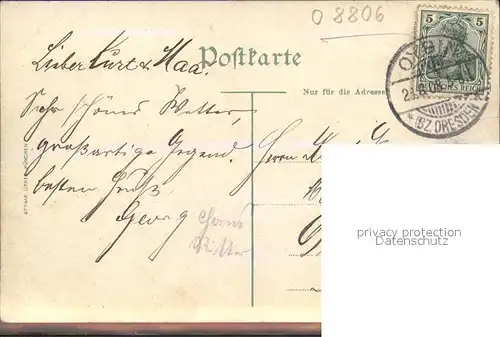 O 8806
5 5
DEUTSCHES REICH
OYBIN
(BZ. DRESDEN)
Postkarte
Nur für die Adresse
Lieber Kurt & Maa.
Sehr schönes Wetter,
großartige Gegend.
besten Gruß
Georg
Hans
Ritter
Herrn
privacy protection
Datenschutz